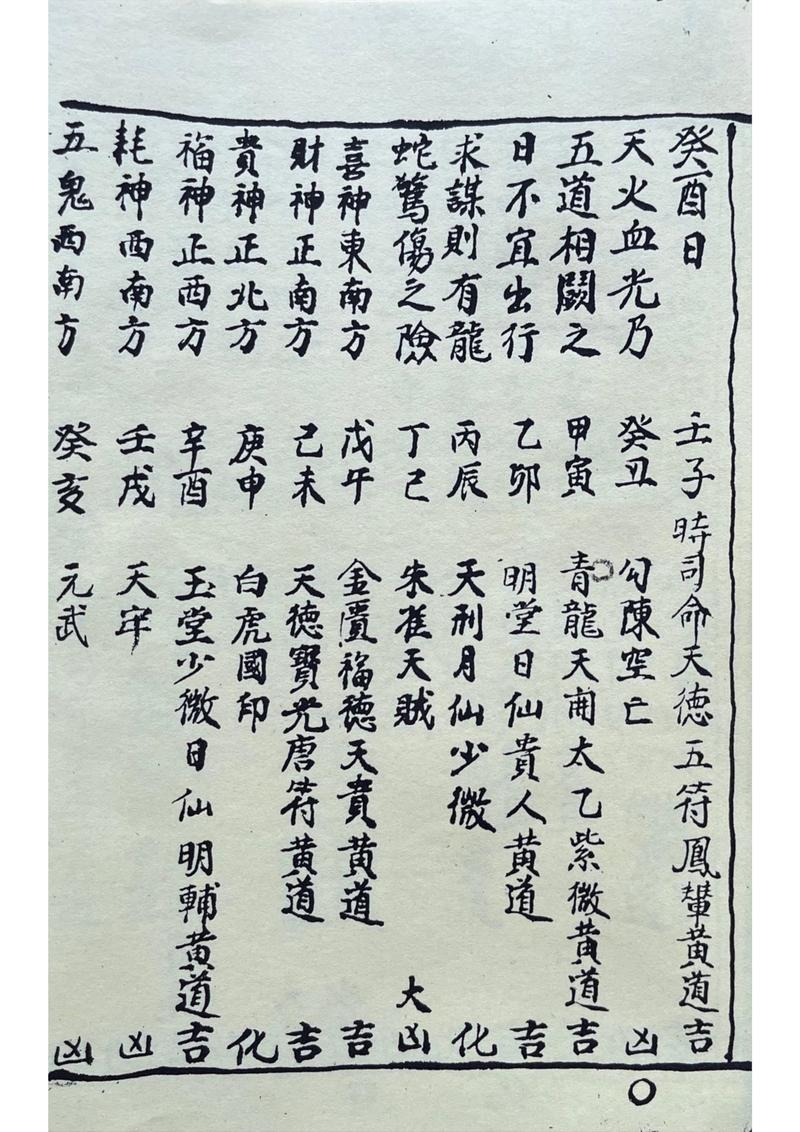 癸酉日 壬子時司命天德五符鳳輦黃道吉
天火血光乃 癸丑 勾陳空亡 凶
五道相鬪之 甲寅 青龍天開太乙紫微黃道吉
日不宜出行 乙卯 明堂日仙貴人黃道 吉
求謀則有龍 丙辰 天刑月仙少微 化
蛇驚傷之險 丁巳 朱雀天賊 大凶
喜神東南方 戊午 金匱福德天貴黃道 吉
財神正南方 己未 天德寶光唐符黃道 吉
貴神正北方 庚申 白虎國印 化
福神正西方 辛酉 玉堂少微日仙明輔黃道吉
耗神西南方 壬戌 天牢 凶
五鬼西南方 癸亥 元武 凶